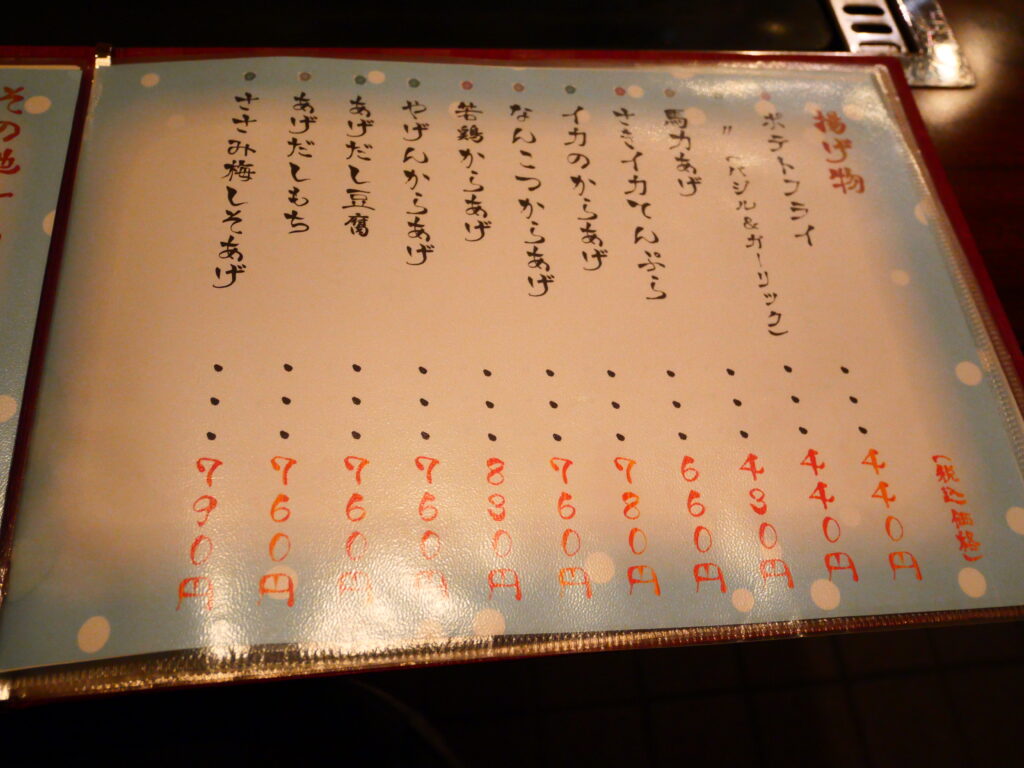 揚げ物
(税込価格)
ポテトフライ・・・440円
〃 (バジル&ガーリック)・・・440円
馬力あげ・・・430円
さきイカてんぷら・・・660円
イカのからあげ・・・780円
なんこつからあげ・・・760円
若鶏からあげ・・・830円
やげんからあげ・・・760円
あげだし豆腐・・・760円
あげだしもち・・・760円
ささみ梅しそあげ・・・790円
その他